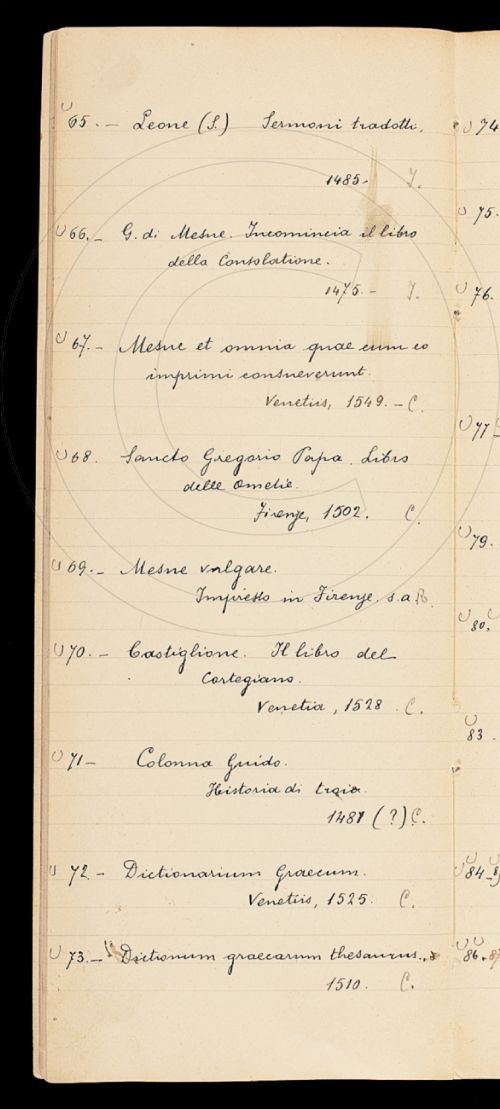 65. - Leone (S.) Sermoni tradotti.
1485 - I.
66. - G. di Mesue. Incomincia il libro
della Consolatione.
1475. - I.
67. - Mesue et omnia quae cum eo
imprimi consueverunt.
Venetiis, 1549. - C.
68. Sancto Gregorio Papa. Libro
delle omelie.
Firenze, 1502. C.
69. - Mesue vulgare.
Impresso in Firenze. s.a.
70. - Castiglione. Il libro del
Cortegiano.
Venetia, 1528. C.
71 - Colonna Guido.
Historia di troia.
1481 (?) C.
72. - Dictionarium Graecum.
Venetiis, 1525. C.
73. - Dictionum graecarum thesaurus.
1510. C.
74
75.
76.
77
79.
80.
83.
84 - 8
86. 87